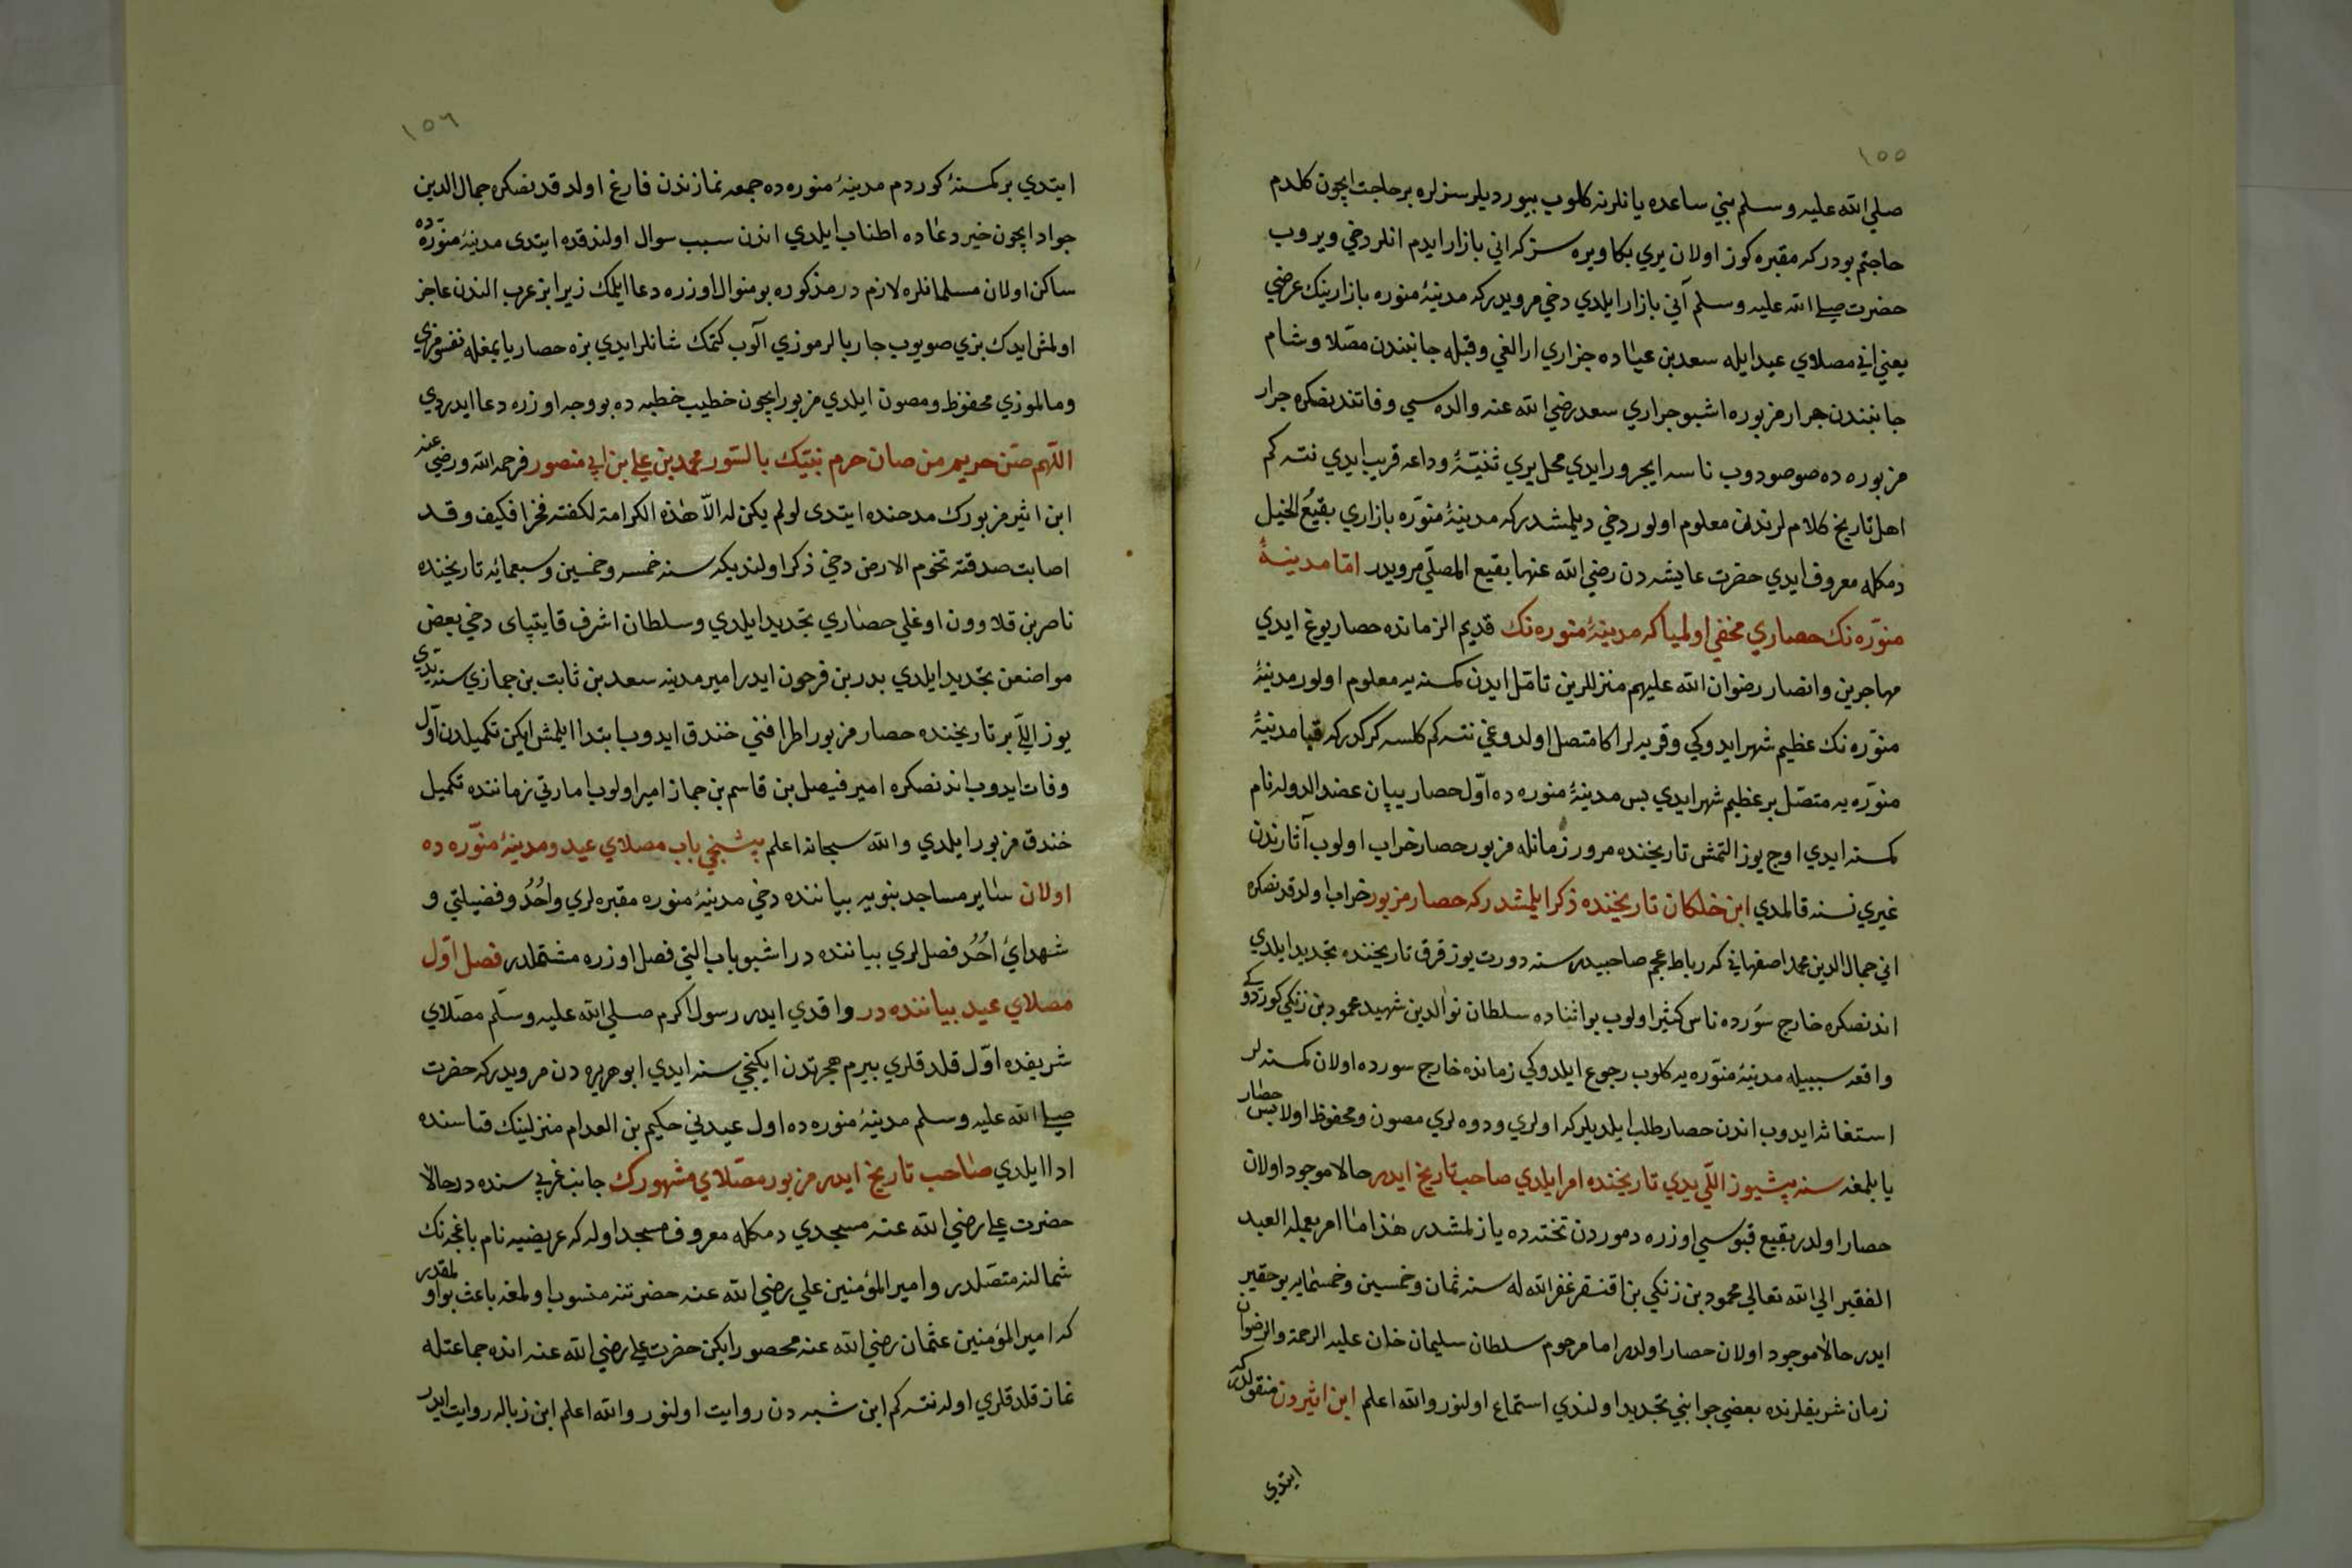 ١٥٥
صلي الله عليه وسلم بني ساعده يانلرنه كلوب بيورديلر سزلره بر حاجت ايچون كلدم
حاجتم بودركه مقبره كوز اولان يري بكا ويره سز كه اني بازار ايدم انلر دخي ويروب
حضرت صلي الله عليه وسلم آني بازار ايلدي دخي مرويدركه مدينۀ منوره بازارينك عرضي
يعني اني مصلاي عيد ايله سعد بن عباده جراري ارالغي وقبله جانبندن مصلا وشام
جانبندن جرار مزبوره اشبو جراري سعد رضي الله عنه والده سي وفاتندنصكره جرار
مزبوره ده صو صودوب ناسه ايچرور ايدي محل يري ثنيّۀ وداعه قريب ايدي نته كم
اهل تاريخ كلام لرندن معلوم اولور دخي ديلمشدركه مدينۀ منوّره بازاري بقيعُ الخيل
دمكله معروف ايدي حضرت عايشه دن رضي الله عنها بقيع المصلّي مرويدر امّا مدينۀ
منوّره نك حصاري مخفي اولميا كه مدينۀ منوره نك قديم الزمانده حصار يوغ ايدي
مهاجرين وانصار رضوان الله عليهم منزللرين تامّل ايدن كمسنه يه معلوم اولور مدينۀ
منوّره نك عظيم شهر ايدوكي وقريه لر اكا متصل اولدوغي نته كم كلسه كركدركه قبا مدينۀ
منوّره يه متصّل بر عظيم شهر ايدي بس مدينۀ منوره ده اوّل حصار يپان عضد الدوله نام
كمسنه ايدي اوج يوز التمش تاريخنده مرور زمانله مزبور حصار خراب اولوب آثارندن
غيري نسنه قالمدي ابن خلكان تاريخنده ذكر ايلمشدركه حصار مزبور خراب اولدقدنصكره
اني جمال الدين محمد اصفهاني كه رباط عجم صاحبيدر سنه دورت يوز قرق تاريخنده تجديد ايلدي
اندنصكره خارج سُورده ناس كثير اولوب بو اثناده سلطان نور الدين شهيد محمود بن زنكي كوردوكي
واقعه سببيله مدينۀ منوّره يه كلوب رجوع ايلدوكي زمانده خارج سورده اولان كمسنه لر
استغاثه ايدوب اندن حصار طلب ايلديلركه اولري ودوه لري مصون ومحفوظ اولا بس حصار
يابلمغه سنه بشيوز اللّي يدي تاريخنده امر ايلدي صاحب تاريخ ايدر حالا موجود اولان
حصار اولدر بقيع قپوسي اوزره دموردن تختده يازلمشدر هٰذا ما امر بعمله العبد
الفقير الي الله تعالي محمود بن زنكي بن اقنسقر غفر الله له سنه ثمان وخمسين وخمسمايه بو حقير
ايدر حالا موجود اولان حصار اولدر اما مرحوم سلطان سليمان خان عليه الرحمة والرضوان
زمان شريفلرنده بعضي جوانبي تجديد اولندي استماع اولنور والله اعلم ابن اثيردن منقولدركه
ايتدي
١٥٦
ايتدي بر كمسنۀ كوردم مدينۀ منوره ده جمعه نمازندن فارغ اولدقدنصكره جمال الدين
جواد ايچون خير دعاده اطناب ايلدي اندن سبب سوال اولندقده ايتدى مدينۀ منوّره ده
ساكن اولان مسلمانلره لازم در مذكوره بو منوال اوزره دعا ايلمك زيرا بز عرب الندن عاجز
اولمش ايدك بزي صويوب جاريالرموزي آلوب كتمك شانلر ايدي بزه حصار يابمغله نفسومزي
ومالموزي محفوظ ومصون ايلدي مزبور ايچون خطيب خطبه ده بو وجه اوزره دعا ايدردي
اللّهم صُن حريم من صان حرم نبيّك بالسّور محمد بن علي بن ابي منصور فرحمه الله ورضي عنه
ابن اثير مزبورك مدحنده ايتدى لو لم يكن له الاّ هٰذه الكرامة لكفته فخرا فكيف وقد
اصابت صدقته تخوم الارض دخي ذكر اولنديكه سنه خمسه وخمسين وسبعمائه تاريخنده
ناصر بن قلاوون اوغلي حصاري تجديد ايلدي وسلطان اشرف قايتباى دخي بعض
مواضعن تجديد ايلدي بدر بن فرحون ايدر امير مدينه سعد بن ثابت بن جمازي سنه يدي
يوز اللّي بر تاريخنده حصار مزبور اطرافني خندق ايدوب ابتدا ايلمش ايكن تكميلدن اوّل
وفات ايدوب اندنصكره امير فيصل بن قاسم بن جماز امير اولوب امارتي زماننده تكميل
خندق مزبور ايلدي والله سبحانه اعلم بشنجي باب مصلاي عيد ومدينۀ منوّره ده
اولان ساير مساجد نبويه بياننده دخي مدينۀ منوره مقبره لري واُحُدُ وفضيلتي و
شهداي اُحُد فضللري بياننده در اشبو باب التي فصل اوزره مشتملدر فصل اوّل
مصلاي عيد بياننده در واقدي ايدر رسول اكرم صلي الله عليه وسلّم مصّلاي
شريفده اوّل قلدقلري بيرم هجرتدن ايكنجي سنه ايدي ابو هريره دن مرويدركه حضرت
صلي الله عليه وسلم مدينۀ منوره ده اول عيدني حكيم بن العدام منزلينك قتاسنده
ادا ايلدي صاحب تاريخ ايدر مزبور مصّلاي مشهورك جانب غربي سنده در حالا
حضرت علي رضي الله عنه مسجدي دمكله معروف مسجد اوله كه عريضيه نام باغچه نك
شمالنه متصّلدر وامير المؤمنين علي رضي الله عنه حضرتنه منسوب اولمغه باعث بو اولمقدر
كه امير المؤمنين عثمان رضي الله عنه محصور ايكن حضرت علي رضي الله عنه انده جماعتله
نماز قلدقلري اوله نته كم ابن شبه دن روايت اولنور والله اعلم ابن زباله روايت ايدر